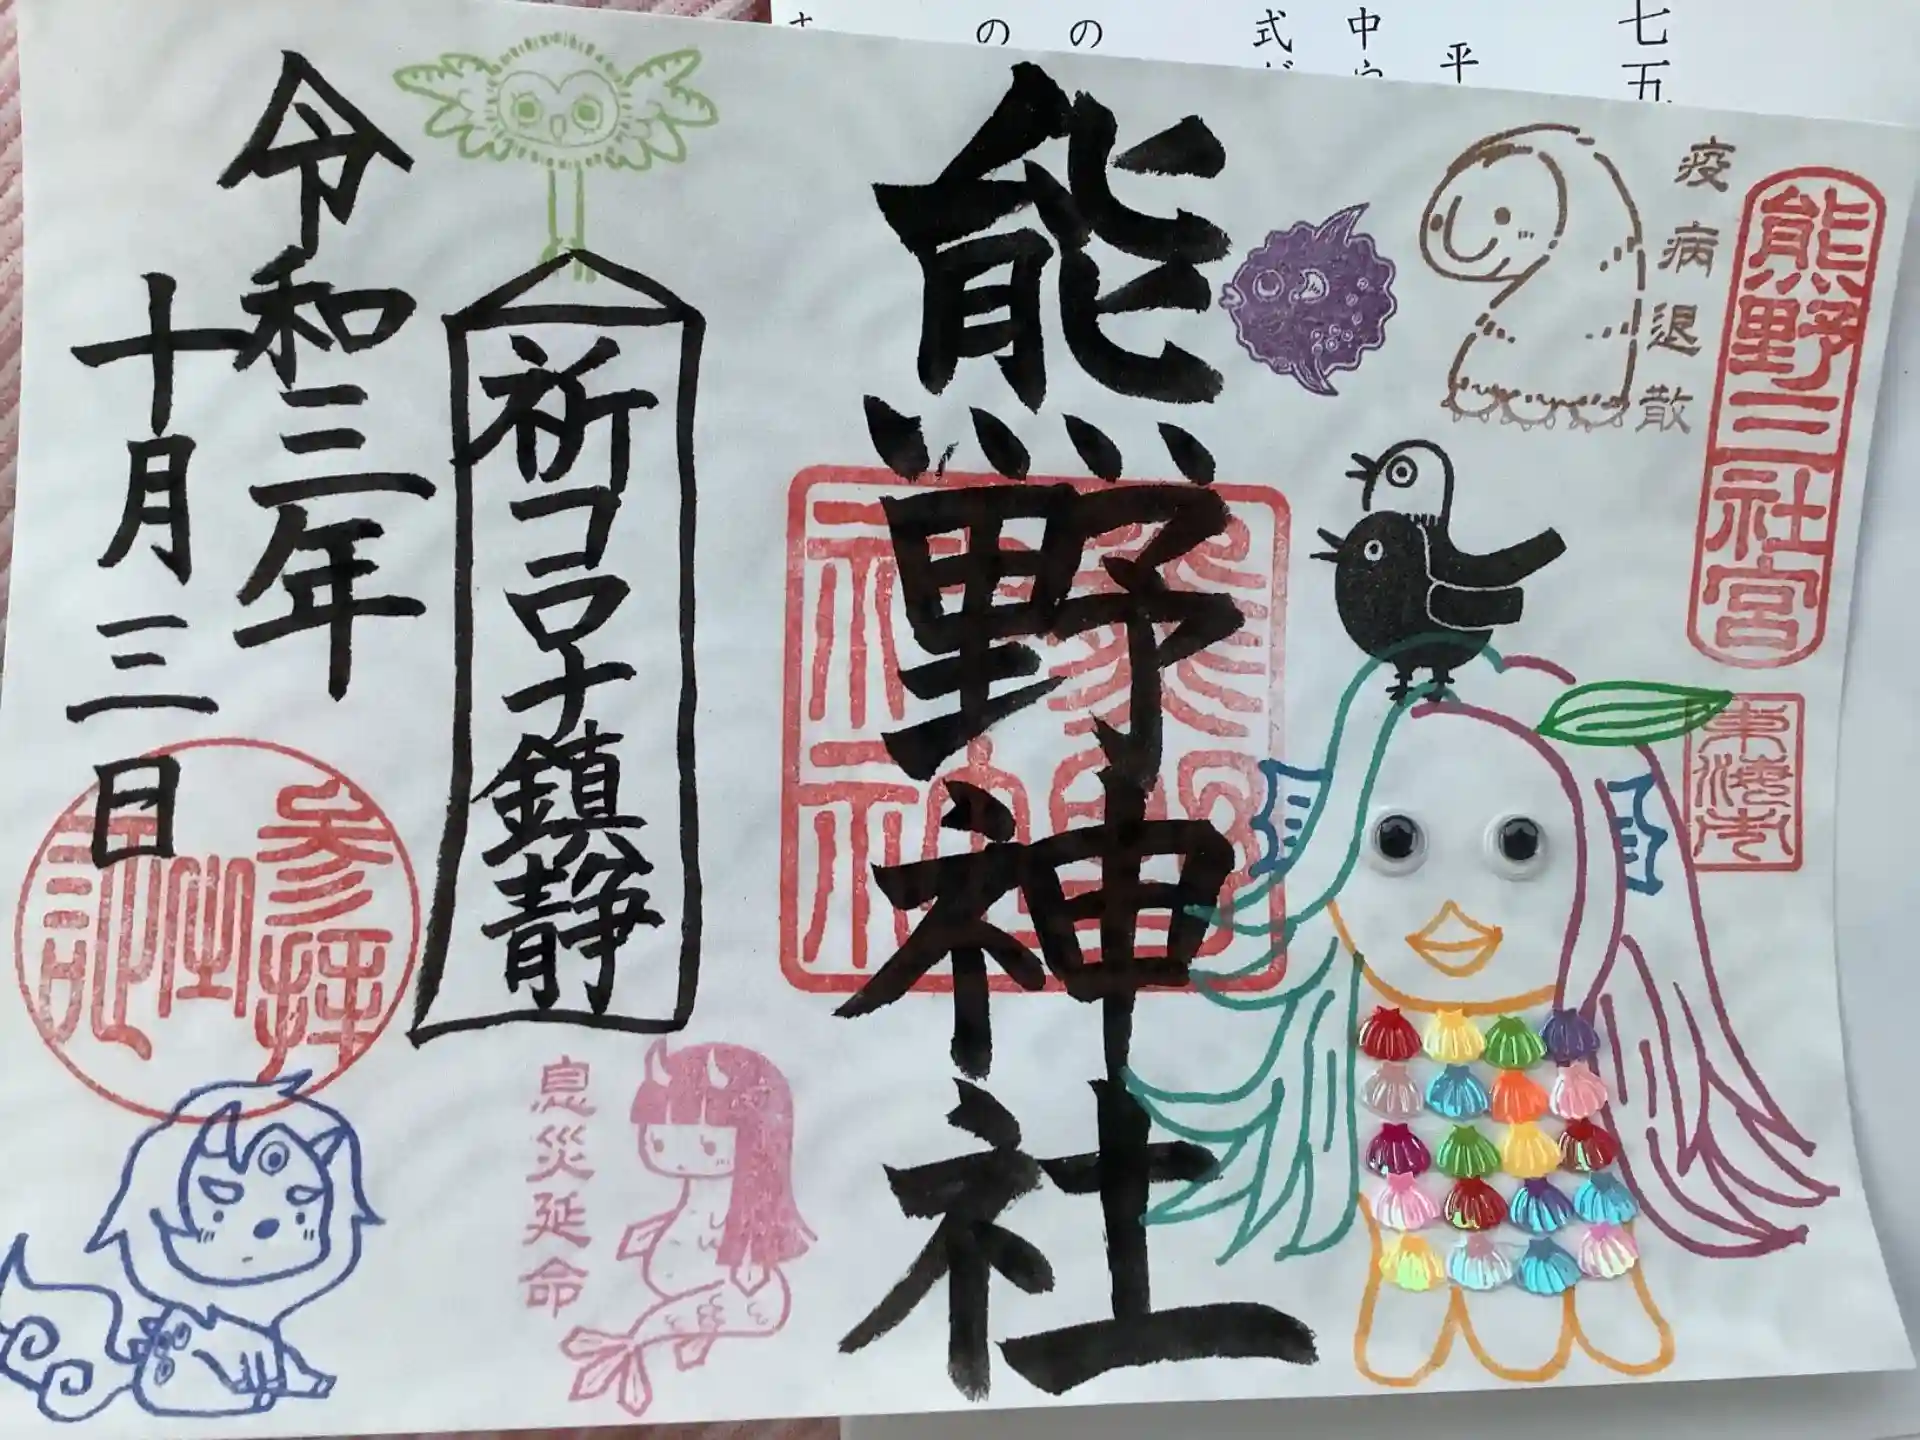 熊野三社宮
東海市
疫病退散
熊野神社
熊野神社
祈コロナ鎮静
息災延命
令和三年
十月三日
参拝之証
七五
平
中
式
の
の